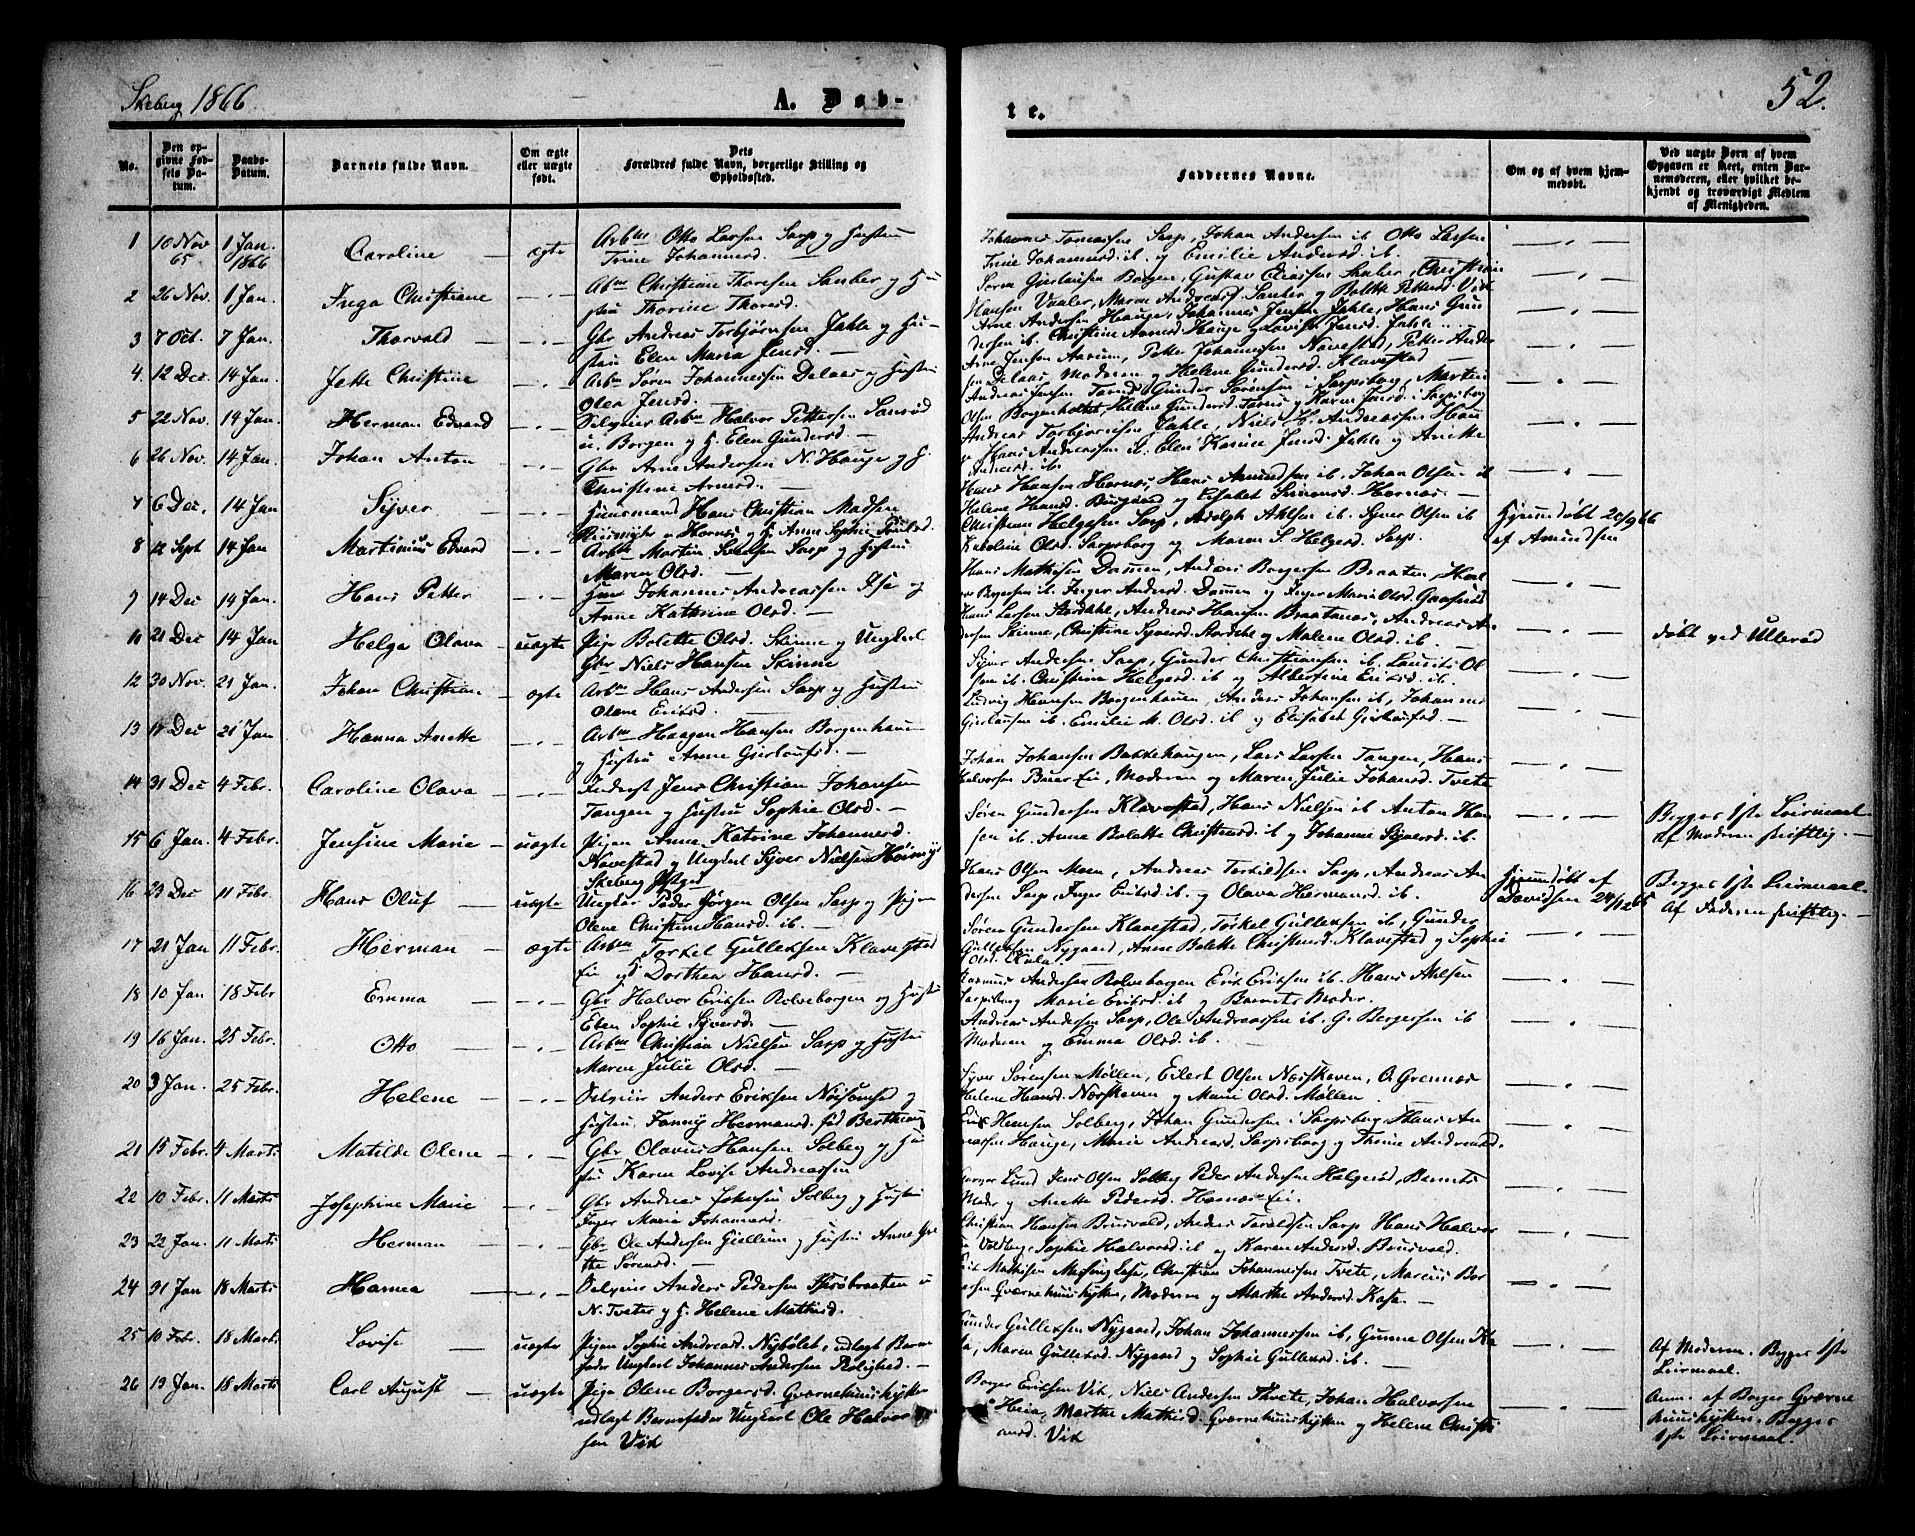 Skeberg 1866.
A. Døb-
te.
52.
No.
Den op-
givne Fød-
sels Da-
tum.
Daabs-
Datum.
Barnets fulde Navn.
Om ægte
eller uægte
født.
Dets
Forældres fulde Navn, borgerlige Stilling og
Opholdssted.
Faddernes Navne.
Om og af hvem hjem-
medøbt.
Ved uægte Børn af hvem
Opgaven er skeet, enten Bar-
nemoderen, eller hvilket be-
kjendt og troværdigt Medlem
af Menigheden.
1 10 Nov 65 1 Jan. 1866 Caroline — ægte Arbm Otto Larsen Sarp og Hustru
Trine Johannesd. —
Johannes Tomassen Sarp, Johan Andersen ib. Otto Larsen
Trine Johannesd. ib. og Emilie Andersd. ib.
2 26 Nov. 1 Jan. Inga Christiane — Arbm Christian Thoresen Sandber og Hu
stru Thorine Thoresd.
Hansen Vaaler, Maren Andreasd. Sanber og Bolette Pettersd. Vik
3 7 Oct. 7 Jan. Thorvald — Gbr Andreas Torbjørnsen Jahle og Hu-
stru Elen Maria Jensd. —
Arne Andersen Hauge, Johannes Jensen Jahle, Hans Gun
dersen ib. Christine Arnesd. Hauge og Lovise Jensd. Jahle
4. 12 Dec. 14 Jan. Jette Christine — Arbm Søren Johannessen Delaas og Hustru
Olea Jensd. —
Arne Jensen Aarum, Petter Johannesen Navestad, Petter Ander
sen Delaas, Moderen og Helene Gundersd. Klavestad —
5 22 Nov. 14 Jan. Herman Edvard — Selveier Arbm Halvor Pettersen Sanrød
u. Borgen og H. Elen Gundersd. —
6 26 Nov. 14 Jan. Johan Anton — Gbr Arne Andersen N. Hauge og H.
Christine Arnesd. —
Andreas Torbjørnsen Jahle, Niels H. Andreassen Hau
ge Hans Andreassen ib. Elen Karine Jensd. Jahle og Anette
Andreasd. ib.
7 6 Dec. 14 Jan Syver — Huusmand Hans Christian Madsen
Hans Hansen Hornes, Hans Amundsen ib. Johan Olsen ib
Helene Hansd. Busgaard og Elisabet Simensd. Hornæs. —
8 12 Sept 14 Jan Martinius Edvard — Arbm Martin Larsen Sarp og Hustru
Maren Olsd. —
Christian Helgesen Sarp, Adolph Ahlsen ib. Syver Olsen ib
Karoline Olsd. Sarpsborg og Maren S. Helgesd. Sarp.
Hjemdøbt 20/9 66
af Amundsen
9 14 Dec 14 Jan. Hans Petter — Huusm Johannes Andreassen Ise og
Anne Kathrine Olsd. —
Hans Mathisen Dammen, Anders Borgersen Braaten, Hal
vor Borgersen ib. Inger Andersd. Dammen og Inger Marie Olsd. Gaasrød
10 21 Dec 14 Jan Helga Olava — uægte Pige Bolette Olsd. Skinne og Ungkarl
Gbr Niels Hansen Skinne
Hans Larsen Stordahl, Andreas Hansen Braatenæs, Andreas An
dersen Skinne, Christine Syversd. Stordahl og Malene Olsd. ib.
døbt ved Ullerød
12 30 Nov. 21 Jan. Johan Christian — ægte Arbm Hans Andersen Sarp og Hustru
Olave Eriksd. —
Syver Andersen Sarp, Gunder Christiansen ib. Laurits Ol
sen ib. Christine Helgesd. ib og Albertine Eriksd. ib.
13 17 Dec 21 Jan Hanna Anette — Arbm Haagen Hansen Borgenhaun
og Hustru Anne Gjerlaufsd. —
Ludvig Hansen Borgenhaun, Anders Johansen ib, Johannes
Gjerlaufsen ib. Emilie M. Olsd. ib og Elisabet Gjerlaufsd. —
14 31 Dec 4 Febr. Caroline Olava — Inderst Jens Christian Johansen
Tangen og Hustru Sophie Olsd. —
Johan Johansen Bakkehaugen, Lars Larsen Tangen, Hans
Halvorsen Buer Eie, Moderen og Maren Julie Johansd. Tvete
15 6 Jan. 4 Febr. Jensine Marie — uægte Pigen Anne Katrine Johannesd.
Navestad og Ungkarl Syver Nielsen
Skeberg Pstgd
Søren Gundersen Klavestad, Hans Nielsen ib Anton Han
sen ib. Anne Bolette Christensd. ib og Johanne Syversd. ib.
Begges 1ste Leiermaal
Af Moderen skriftlig. —
16 23 Dec 11 Febr. Hans Oluf — uægte Ungkar Peder Jørgen Olsen Sarp og Pigen
Olene Christine Hansd. ib. —
Hans Olsen Moen, Andreas Torkildsen Sarp, Andreas An
dersen Sarp, Inger Eriksd. ib. og Olava Hermansd. ib.
Hjemdøbt af
Davidsen 24/12 65
Begges 1ste Leiermaal
Af Faderen skriftlig. —
17 21 Jan 11 Febr. Herman — ægte Arbm Torkel Gulleksen Klavestad
Eie og H. Dorthea Hansd. —
Søren Gundersen Klavestad, Torkel Gulleksen ib, Gunder
Gulleksen Nygaard, Anne Bolette Christensd. Klavestad og Sophie
Olsd. Kula
18 10 Jan 18 Febr Emma — Gbr Halvor Eriksen Rolveborgen og Hustru
Elen Sophie Syversd. —
Rasmus Andersen Rolveborgen Erik Eriksen ib. Hans Ahlsen
Sarpsborg Marie Eriksd. ib og Barnets Moder.
19 16 Jan. 25 Febr. Otto — Arbm Christian Nielsen Sarp og Hustru
Maren Julie Olsd. —
Andreas Andersen Sarp, Ole Andreassen ib. G. Bergersen ib
Moderen og Emma Olsd. ib. —
20 3 Jan. 25 Febr. Helene — Selveier Anders Eriksen Nøisomhed og
Hustru Fanny Hermansd. fød Berthau
Syver Sørensen Møllen, Eilert Olsen Norskeven, O. Grennæs
Helene Hansd. Norskeven og Marie Olsd. Møllen
21 15 Febr. 4 Marts Matilde Olene — Gbr Olavus Hansen Solberg og Hu
stru Karen Lovise Andreassen
Erik Hansen Solberg, Johan Gundersen i Sarpsborg, Hans An
dreassen Hauge, Marie Andreasd. Sarpsborg og Thrine Andreasd.
22 10 Febr. 11 Marts Josephine Marie — Gbr Andreas Johnsen Solberg og Hustru
Inger Maria Johannesd. —
Lund Jens Olsen Solberg Peder Andersen Helgerød, Barnets
Moder og Anette Pedersd. Hornæs Eie.
23 22 Jan. 11 Marts Herman — Gbr Ole Andersen Gjellum og Hustru Anne Gre
the Sørensd. —
Christian Hansen Brusvold, Anders Taraldsen Sarp Hans Halvor
sen Voldberg, Sophie Halvorsd. ib og Karen Andersd. Brusvold.
24 31 Jan 18 Marts Hanna — Selveier Anders Pedersen Furubraaten u
N. Tveter og H. Helene Mathisd. —
Mathisen Missing Eie, Christian Johannesen Tvete, Marcus Bor
gersen Qværnehuushytten, Moderen og Marthe Andersd. Kasa. —
25 10 Febr. 18 Marts. Lovise — uægte Pigen Sophie Andreasd. Nybølet, udlagt Barne
fader Ungkarl Johannes Andersen Rolighed. —
Gunder Gulleksen Nygaard, Johan Johannessen ib, Gunne Olsen Ku
la, Maren Gulleksd. Nygaard og Sophie Gulleksd. ib. —
Af Moderen. Begges 1ste
Leiermaal.
26 13 Jan. 18 Marts Carl August — uægte Pige Olene Borgersd. Qværnehuushytten
udlagt Barnefader Ungkarl Ole Halvor
sen Vik
Borger Eriksen Vik, Niels Andersen Thvete, Johan Halvorsen
Heia, Marthe Mathisd. Qværnehuushytten og Helene Christi
ansd. Vik
Anm. af Borger Qværne
huushytten. Begges
1ste Leiermaal.